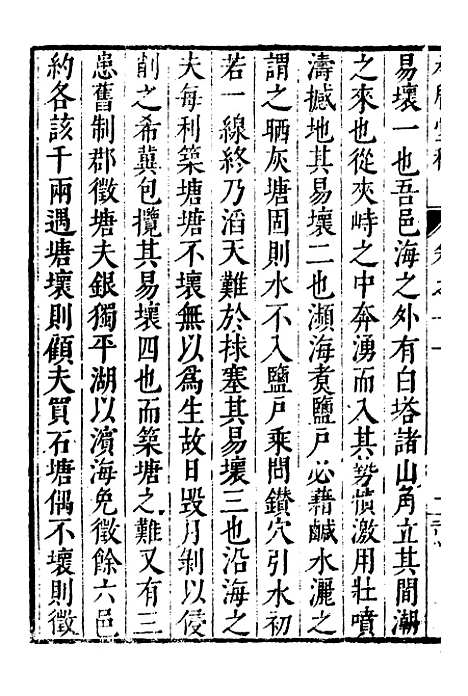 易壞一也吾邑海之外有白塔諸山角立其間潮
之來也從夾峙之中奔湧而入其勢憤激用壯噴
濤撼地其易壞二也瀕海煑鹽戶必藉鹹水灑之
謂之晒灰塘固則水不入鹽戶乘間鑚穴引水初
若一線終乃滔天難於捄塞其易壞三也沿海之
夫每利築塘塘不壞無以為生故日毀月剝以侵
削之希冀包攬其易壞四也而築塘之難又有三
患舊制郡徵塘夫銀獨平湖以濱海免徵餘六邑
約各該千兩遇塘壞則顧夫買石塘偶不壞則徵